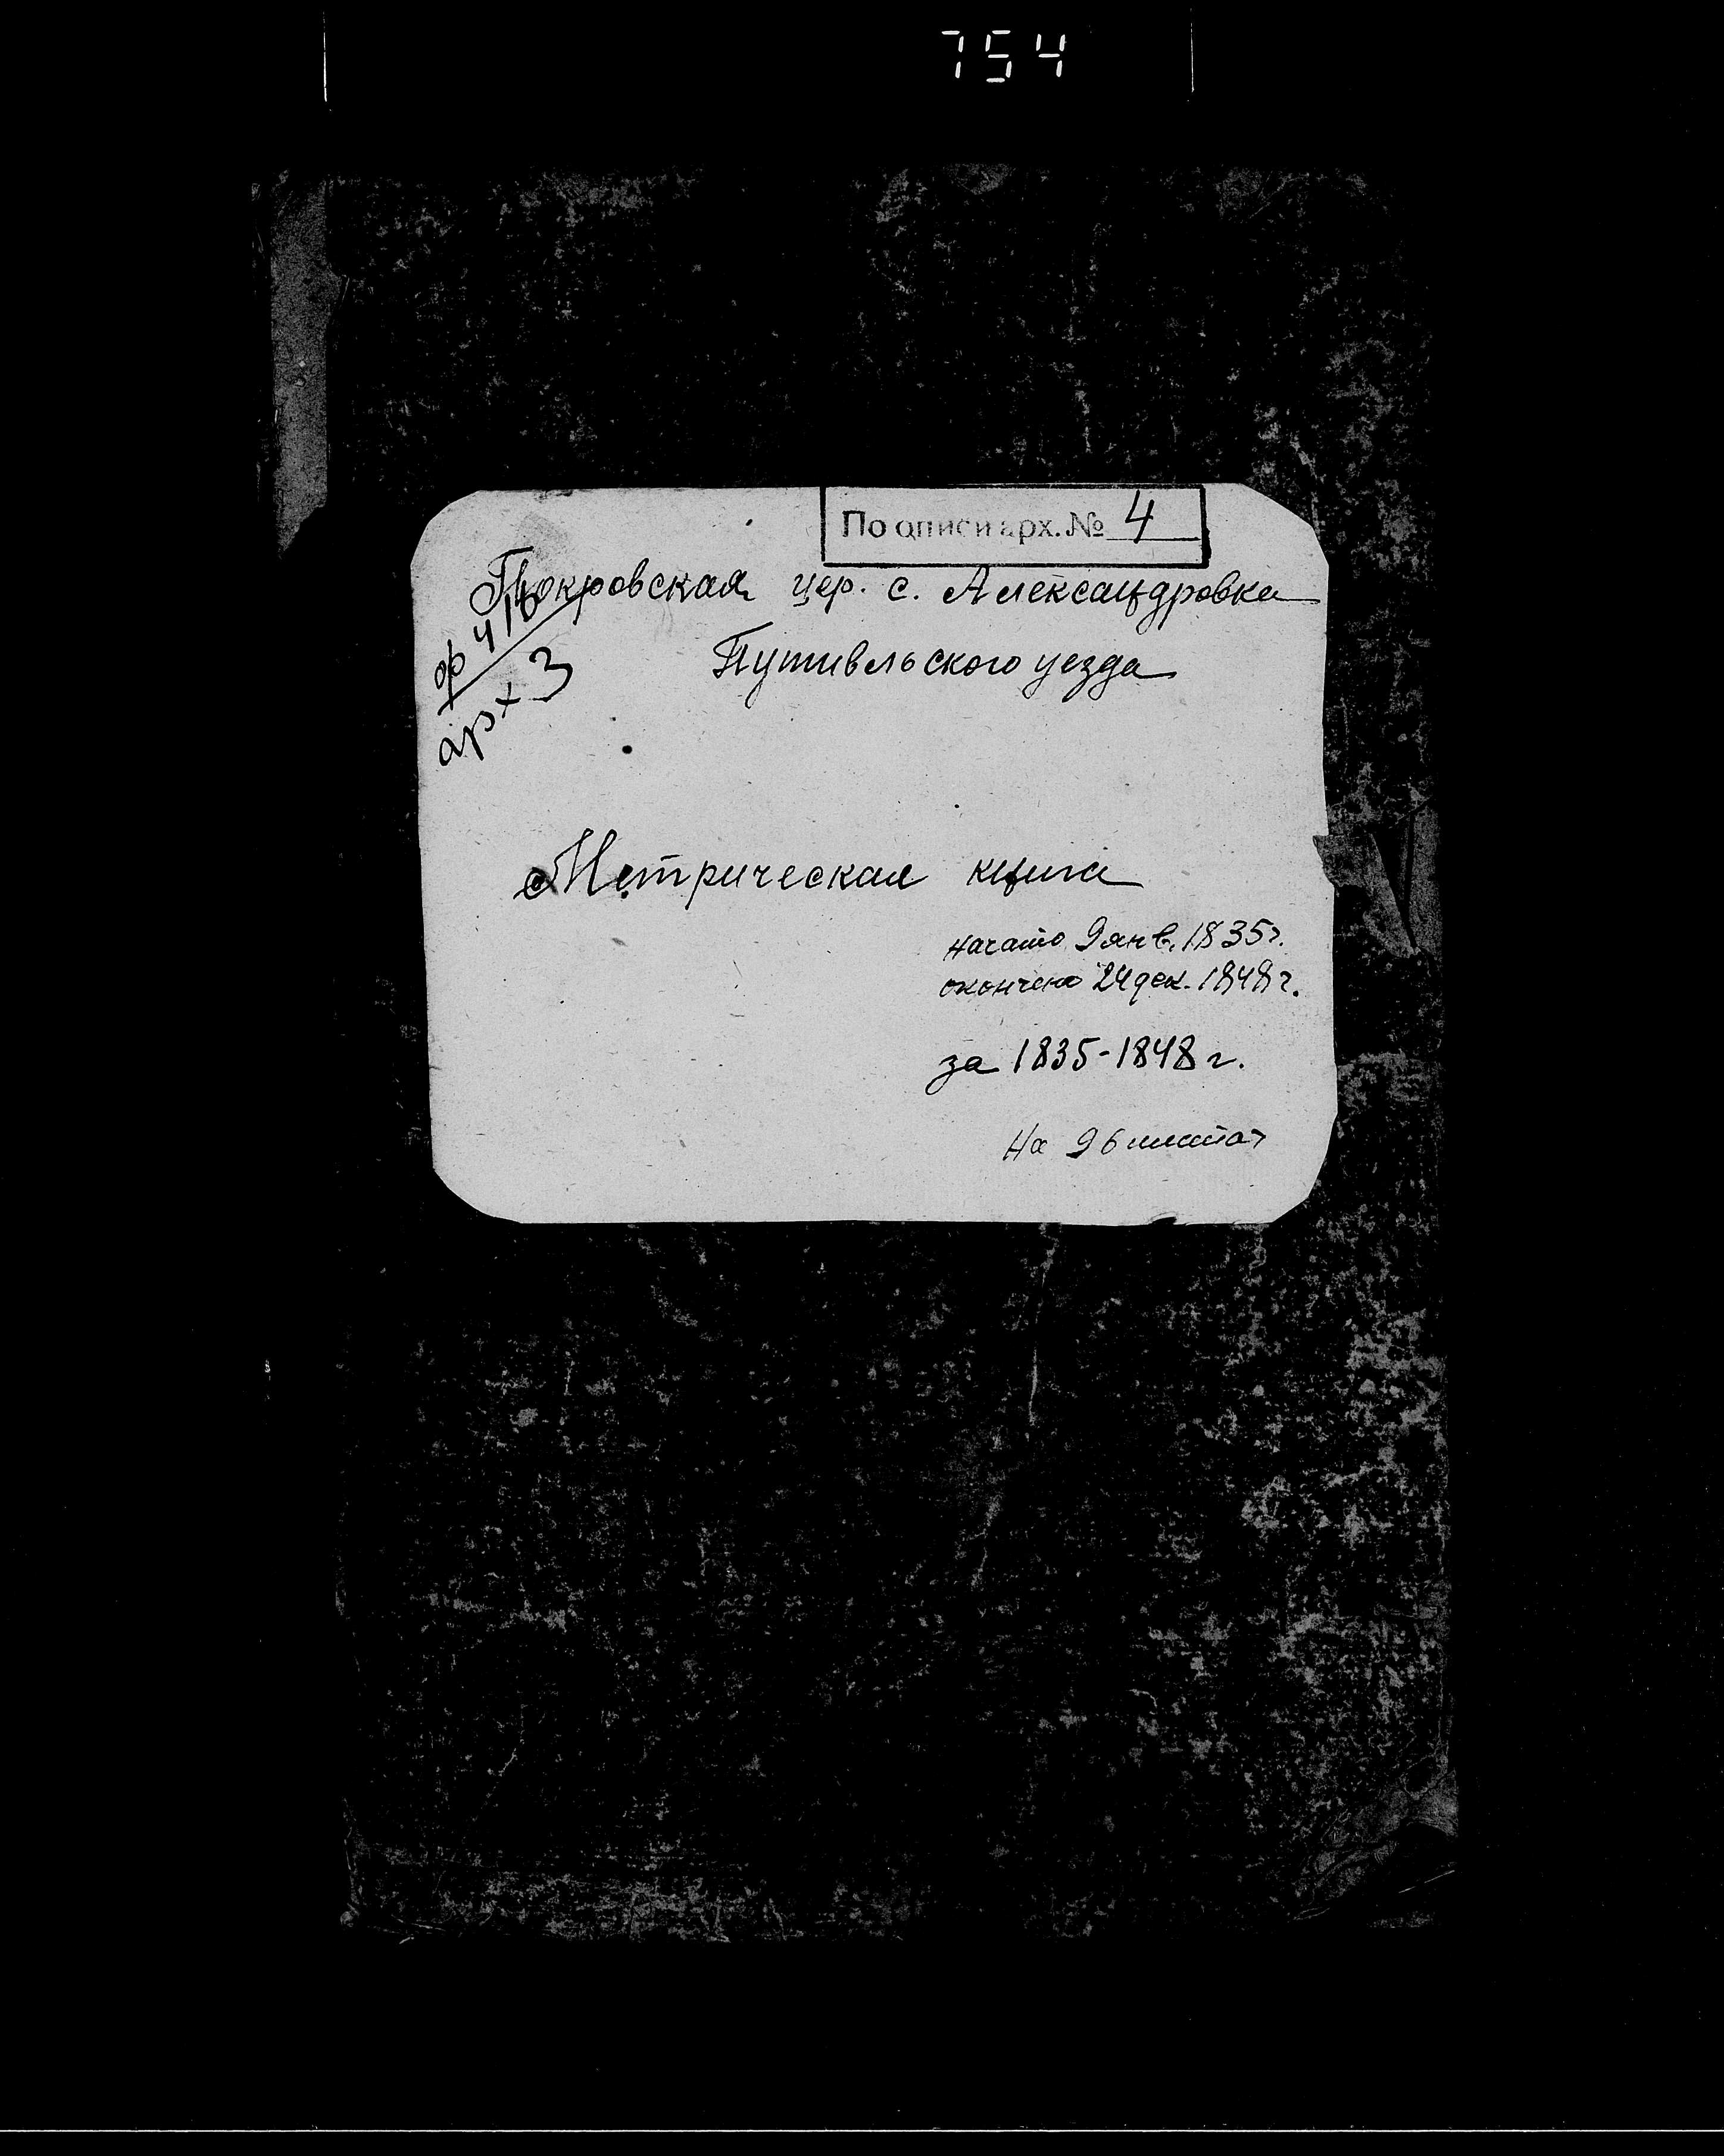 754
По описи арх. № 4
Покровская цер. с. Александровка
Путивльского уезда
ф 416
арх 3
Метрическая книга
начато 9 янв. 1835 г.
окончено 24 дек. 1848 г.
за 1835-1848 г.
На 96 листах